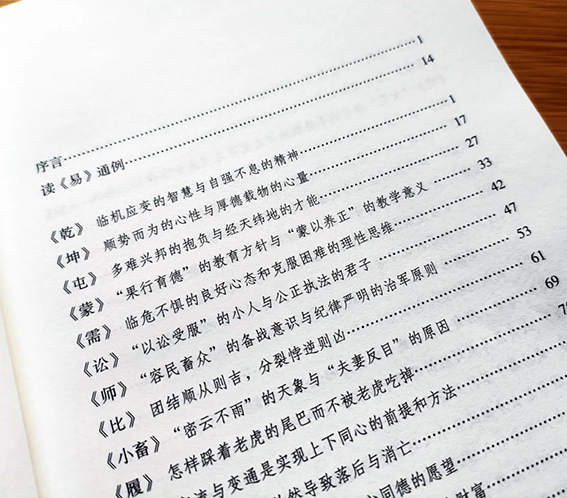 序言……1
读《易》通例……14
《乾》 临机应变的智慧与自强不息的精神……1
《坤》 顺势而为的心性与厚德载物的心量……17
《屯》 多难兴邦的抱负与经天纬地的才能……27
《蒙》 “果行育德”的教育方针与“蒙以养正”的教学意义……33
《需》 临危不惧的良好心态和克服困难的理性思维……42
《讼》 “以讼受服”的小人与公正执法的君子……47
《师》 “容民畜众”的备战意识与纪律严明的治军原则……53
《比》 团结顺从则吉，分裂悖逆则凶……61
《小畜》 “密云不雨”的天象与“夫妻反目”的原因……69
《履》 怎样踩着老虎的尾巴而不被老虎吃掉……
流与变通是实现上下同心的前提和方法……
然导致落后与消亡……
同德的愿望
财富